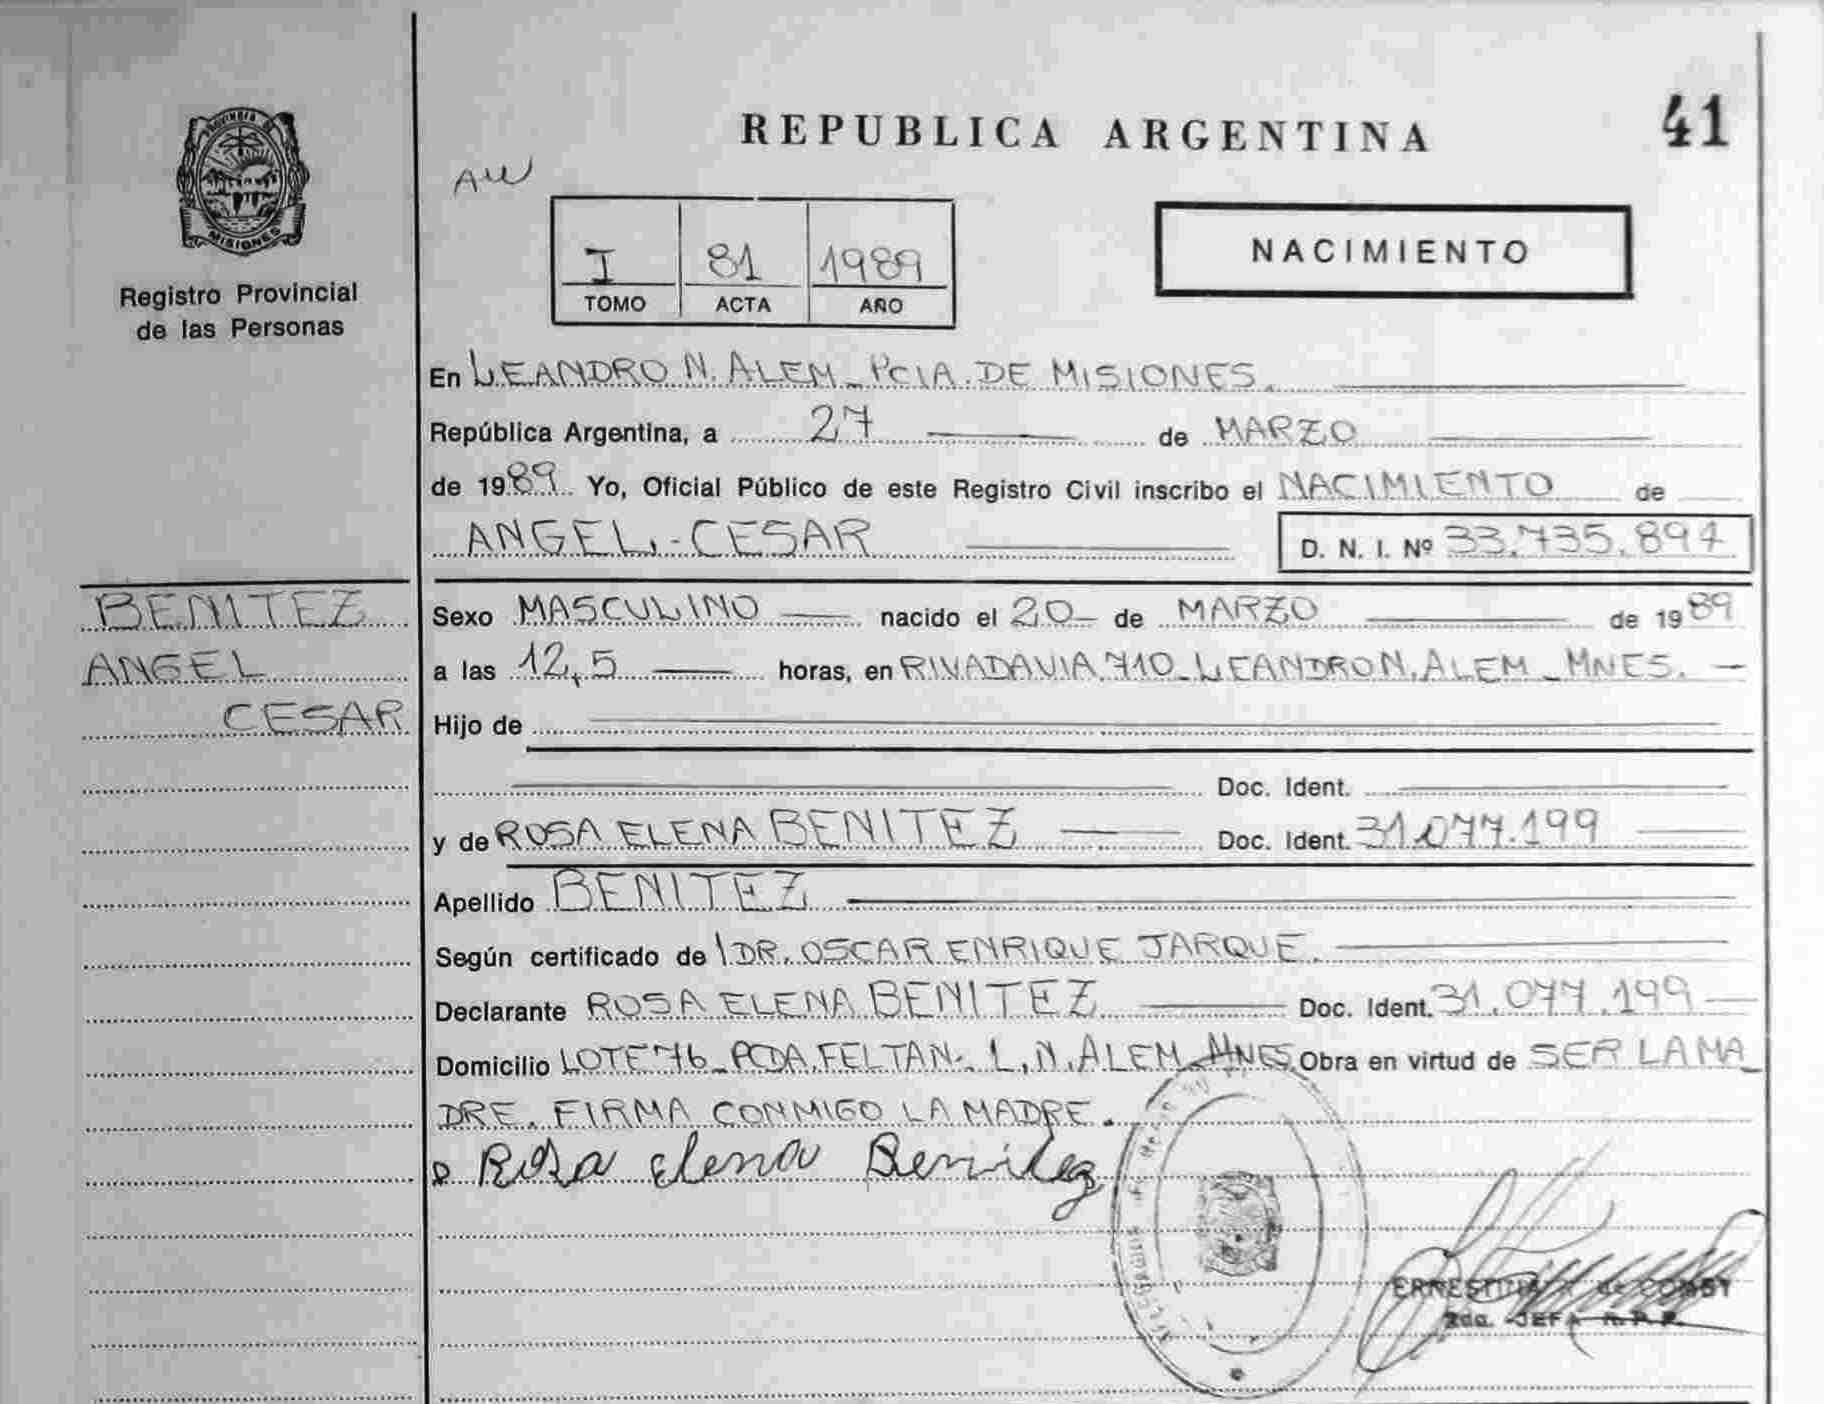 41
REPUBLICA ARGENTINA
PROVINCIA DE
MISIONES
Registro Provincial
de las Personas
I 81 1989
TOMO ACTA AÑO
NACIMIENTO
En LEANDRO N. ALEM - PCIA. DE MISIONES.
República Argentina, a 27 de MARZO
de 1989. Yo, Oficial Público de este Registro Civil inscribo el NACIMIENTO de
ANGEL.-CESAR D. N. I. Nº 33.735.897
BENITEZ
ANGEL
CESAR
Sexo MASCULINO nacido el 20 de MARZO de 1989
a las 12,5 horas, en RIVADAVIA 710 - LEANDRO N. ALEM - MNES.
Hijo de
Doc. Ident.
y de ROSA ELENA BENITEZ Doc. Ident. 31.077.199
Apellido BENITEZ
Según certificado de DR. OSCAR ENRIQUE JARQUE.
Declarante ROSA ELENA BENITEZ Doc. Ident. 31.077.199
Domicilio LOTE 76 - PCDA. FELTAN-. L.N. ALEM MNES. Obra en virtud de SER LA MA
DRE. FIRMA CONMIGO LA MADRE.
Rosa Elena Benitez
2da. JEFA R.P.P.